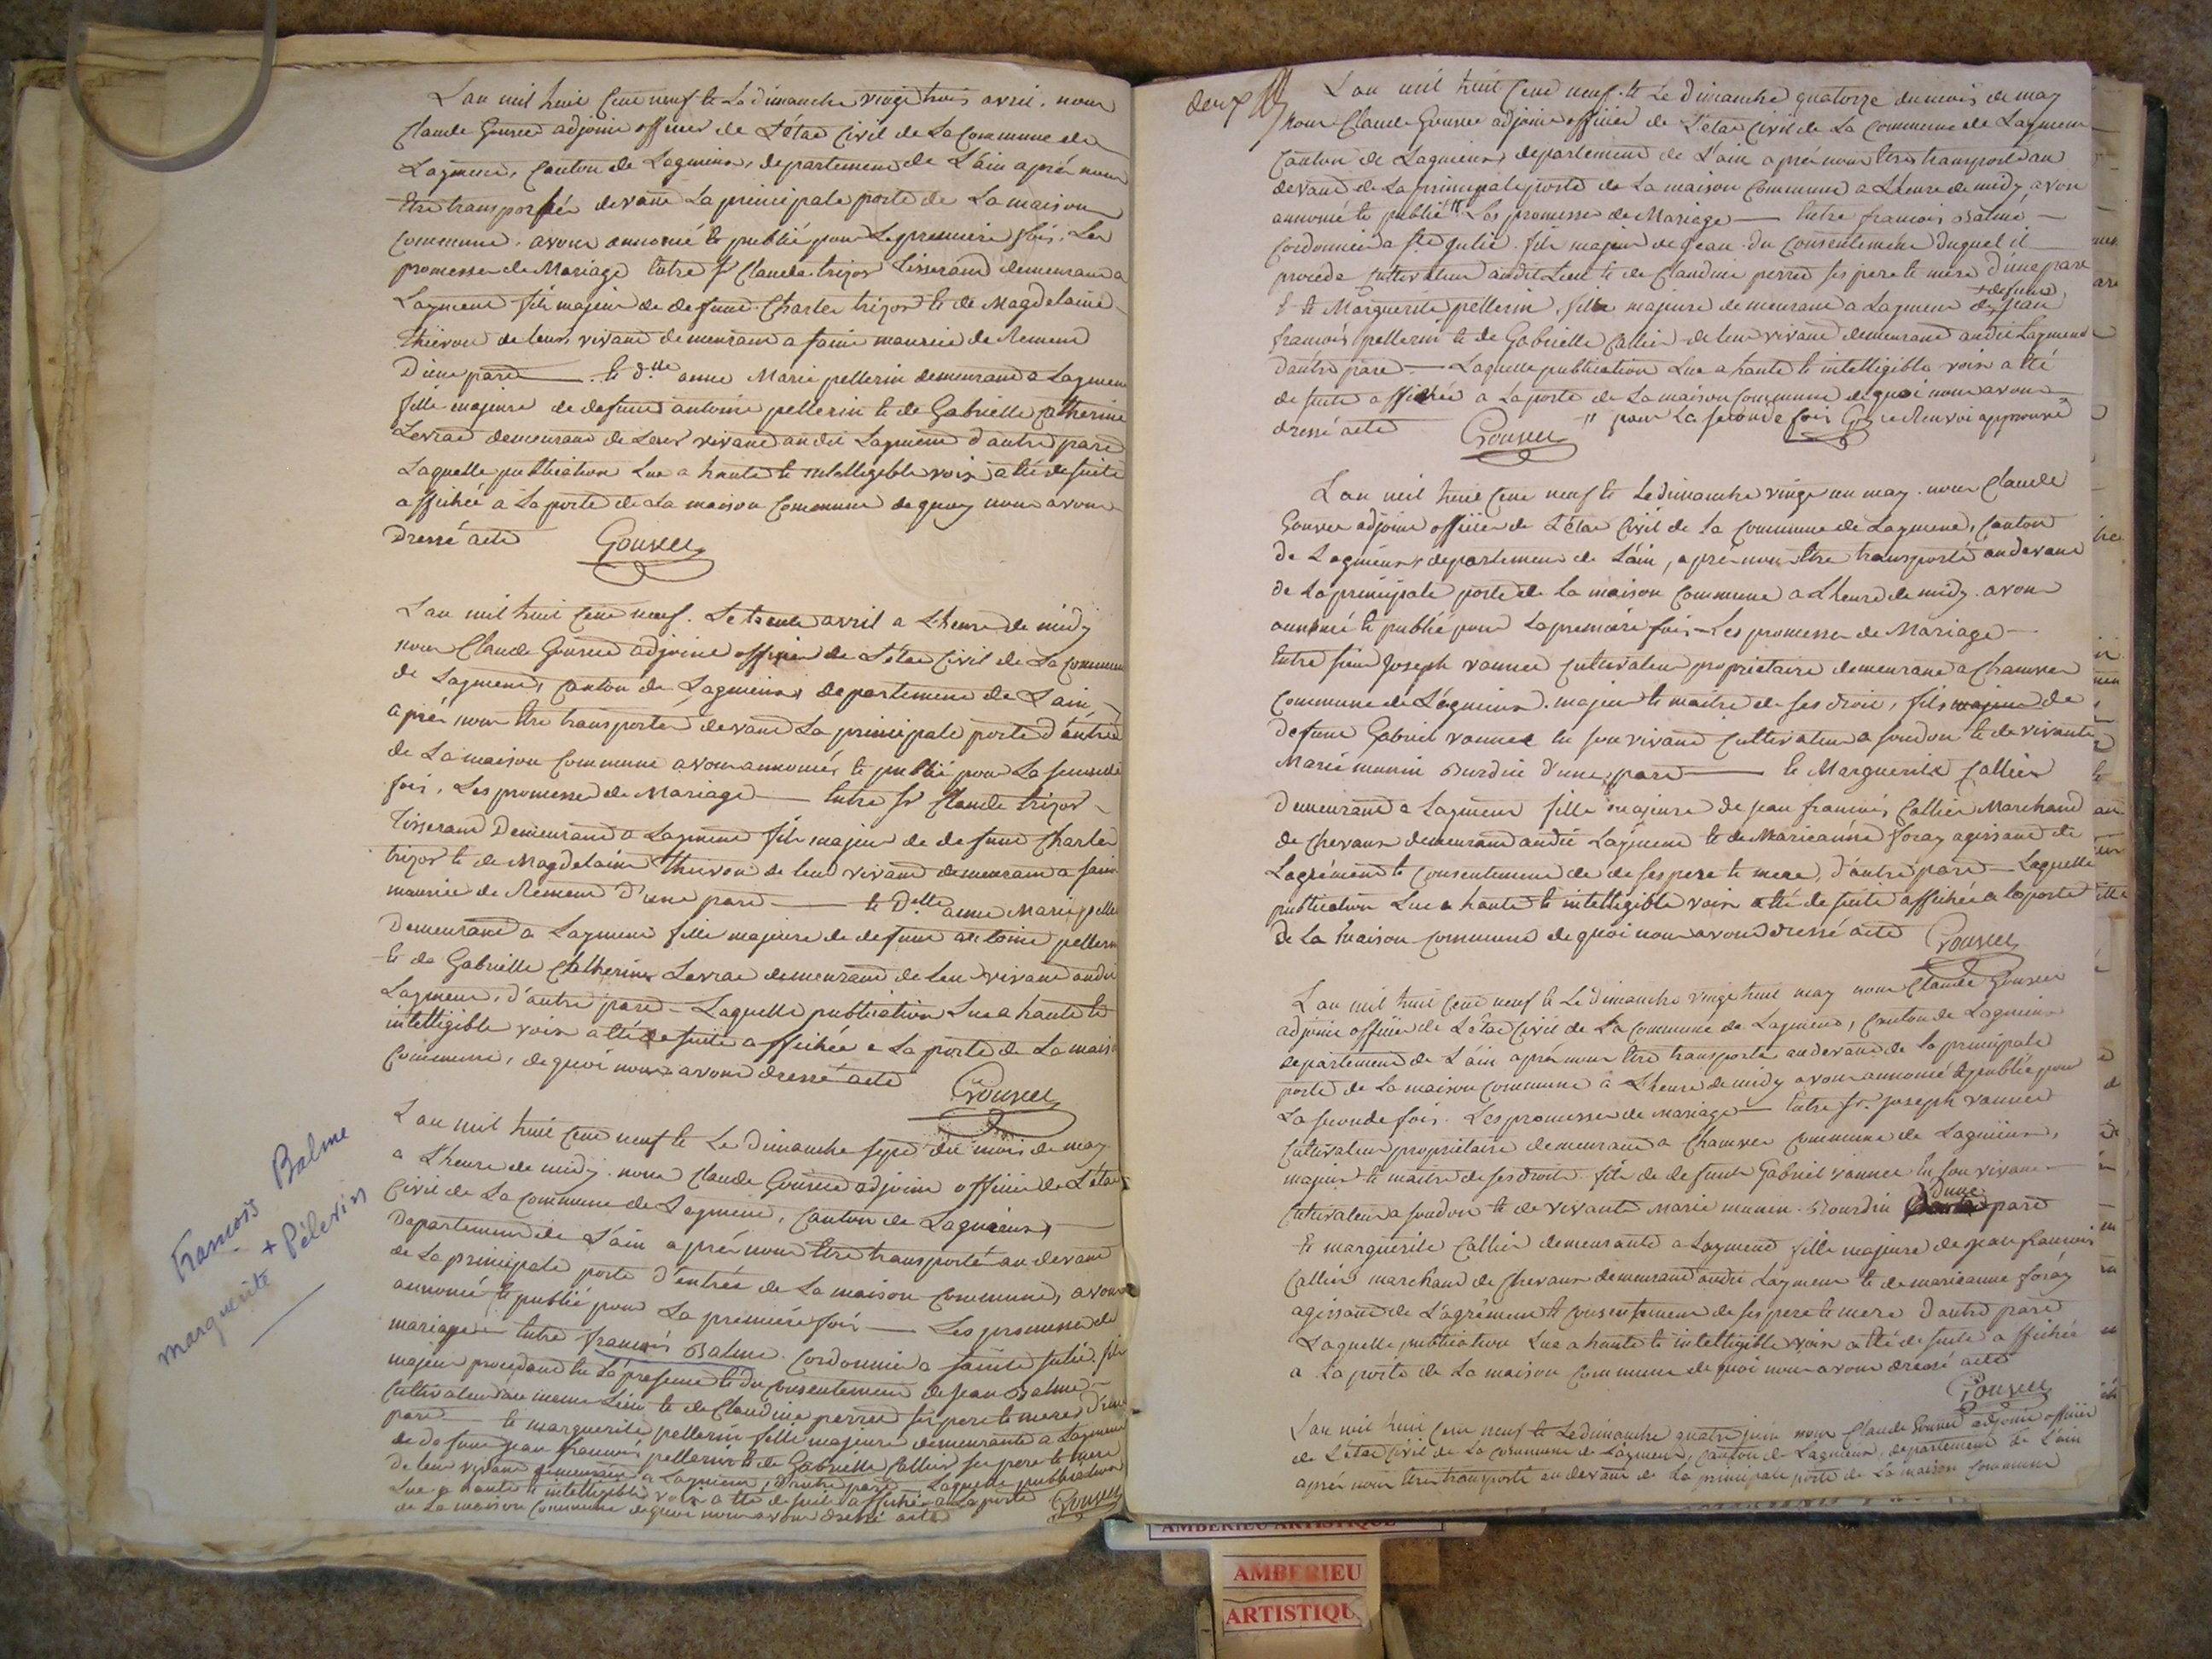 L'an mil huit Cent neuf & Le dimanche vingt trois avril. nous
Claude Gouvee adjoint officier de L'état Civil de La Commune de
Lagnieu, Canton de Lagnieux, departement de L'ain après nous
être transportés devant La principale porte de La maison
Commune. avons annoncé & publié pour La premiere fois. Les
promesses de Mariage Entre Sr Claude trizot tisserand demeurant a
fils majeur de defunt Charles trizot & de Magdelaine
thievon de leurs vivant demeurant a saint maurice de Remend
D'une part — & d.lle anne Marie pellerin demeurant a
fille majeure de defunt antoine pellerin & de Gabrielle Catherine
Levrat demeurant de Leur vivant audit d'autre part
Laquelle publication Lue a haute & intelligible voix a été de suite
affichée a La porte de La maison Commune de quoy nous avons
Dressé acte
L'an mil huit Cent neuf. Le trente avril a L'heure de midy
nous Claude adjoint officier de L'état Civil de La Commune
de Canton de Lagnieux departement de L'ain,
après nous être transporter devant La principale porte d'entrée
de La maison Commune avons annoncés & publié pour La seconde
fois, Les promesse de Mariage — Entre Sr Claude trizot
Tisserand Demeurant a fils majeur de defunt Charles
trizot & de Magdelaine thievon de leur vivant demeurant a saint
maurice de Remend D'une part — & D.elle anne Marie pelle
Demeurant a fille majeure de defunt antoine pellerin
& de Gabrielle Catherine Levrat demeurant de leur vivant audit
d'autre part — Laquelle publication Lue a haute &
intelligible voix a été de suite affichée a La porte de La maison
Commune, de quoi nous avons dressé acte
L'an mil huit Cent neuf & Le dimanche sept du mois de may
a L'heure de midy. nous Claude adjoint officier de L'état
Civil de La Commune de Canton de Lagnieux,
Departement de L'ain après nous être transporté au devant
de La principale porte d'entrée de La maison Commune, avons
annoncé & publié pour La première fois — Les promesse de
mariage — Entre françois Balme. Cordonnier a sainte Julie, fils
majeur procedant en La présence & du Consentement de jean Balme
Cultivateur au meme Lieu & de Claudine perret ses pere & mere d'une
part — & marguerite pellerin fille majeure demeurante a
de defunt jean françois pellerin & de Gabrielle Callier ses pere & mere
de leur vivant demeurant a d'autre part, Laquelle publication
Lue a haute & intelligible voix a été de suite affichée a La porte
de La maison Commune de quoi nous avons dressé acte
François Balme
+ Pélerin
marguerite
deux
L'an mil huit Cent neuf. & Le dimanche quatorze du mois de may
Nous Claude adjoint officier de L'état Civil de La Commune de
Canton de Lagnieux departement de L'ain après nous être transporté au
devant de La principale porte de La maison Commune a L'heure de midy avons
annoncé & publié Les promesses de Mariage — Entre francois Balme —
Cordonnier a Ste Julie. fils majeur de jean du Consentement duquel il
procede Cultivateur audit Lieu & de Claudine perret ses pere & mère d'une part
& Marguerite pellerin fille majeure demeurant a de defunt jean
françois pellerin & de Gabrielle Callier de leur vivant demeurant audit
d'autre part — Laquelle publication Lue a haute & intelligible voix a été
de suite affichée a La porte de La maison Commune de quoi nous avons
dressé acte
pour La seconde fois Renvoi approuvé
L'an mil huit Cent neuf & Le dimanche vingt un may. nous Claude
adjoint officier de L'état Civil de La Commune de Canton
de Lagnieux departement de L'ain, après nous être transporté au devant
de La principale porte de La maison Commune a L'heure de midy. avons
annoncé & publié pour La premiere fois — Les promesses de Mariage —
Entre sieur Joseph vannee Cultivateur propriétaire demeurant a
Commune de Lagnieux. majeur & maitre de ses droit, fils de
defunt Gabriel vannee en son vivant Cultivateur a soudon & de vivante
Marie D'une part — & Marguerite Callier
Demeurant a fille majeure de jean francois Callier Marchand
de Chevaux demeurant audit & de Marieanne foray agissant de
L'agrément & Consentement de ses pere & mere, d'autre part — Laquelle
publication Lue a haute & intelligible voix a été de suite affichée a La porte
De La maison Commune de quoi nous avons dressé acte
L'an mil huit Cent neuf & Le dimanche vingt huit may nous Claude
adjoint officier de L'état Civil de La Commune de Canton de Lagnieux
departement de L'ain après nous être transporté au devant de La principale
porte de La maison Commune à L'heure de midy avons annoncé & publié pour
La seconde fois. Les promesses de mariage — Entre Sr. Joseph vannee
Cultivateur propriétaire demeurant a Commune de Lagnieux,
majeur & maitre de ses droits. fils de defunt Gabriel vannee en son vivant
Cultivateur a soudon & de vivante Marie d'une part
& marguerite Callier demeurante a fille majeure de jean francois
Callier marchand de Chevaux demeurant audit & de marieanne foray
agissant de L'agrément & Consentement de ses pere & mere D'autre part
Laquelle publication Lue a haute & intelligible voix a été de suite affichée
a La porte de La maison Commune de quoi nous avons dressé acte
L'an mil huit Cent neuf & Le dimanche quatre juin nous Claude adjoint officier
de L'état Civil de La Commune de Canton de Lagnieux, departement de L'ain
après nous être transporté au devant de La principale porte de La maison Commune
AMBERIEU ARTISTIQUE
AMBERIEU
ARTISTIQU